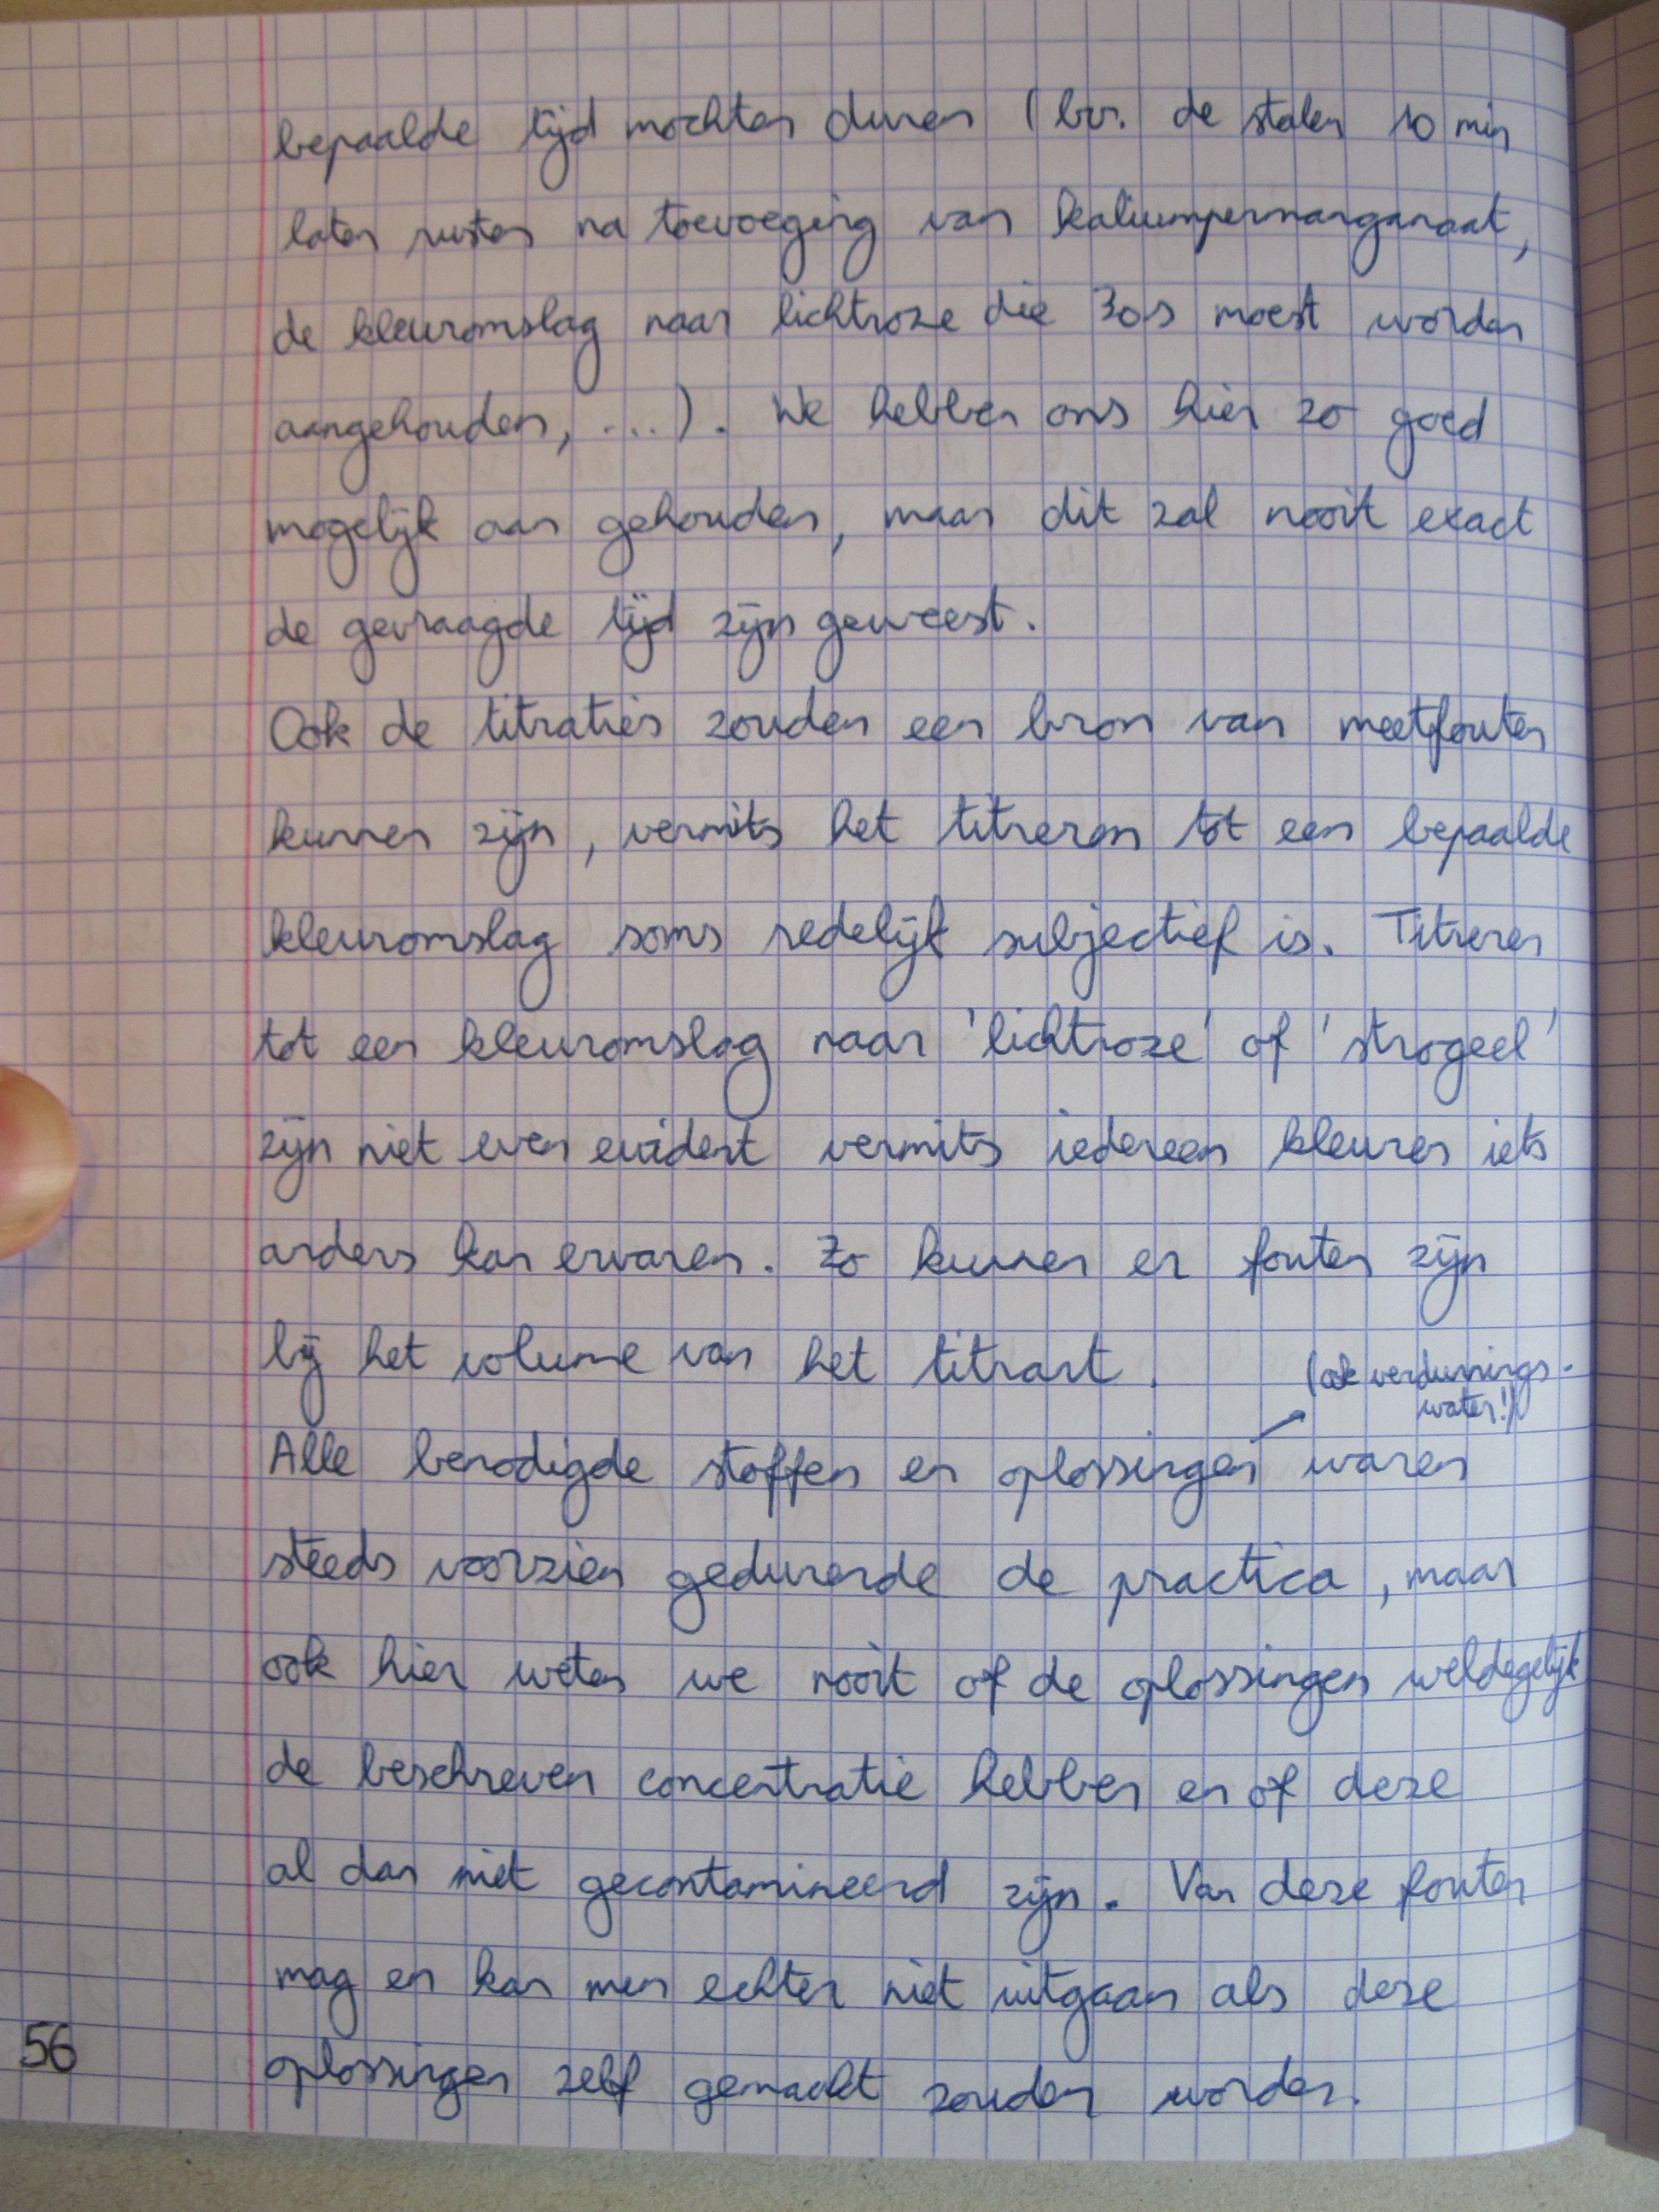 bepaalde tijd mochten duren (bv. de stalen 10 min
laten rusten na toevoeging van kaliumpermanganaat,
de kleuromslag naar lichtroze die 30s moest worden
aangehouden, ...). We hebben ons hier zo goed
mogelijk aan gehouden, maar dit zal nooit exact
de gevraagde tijd zijn geweest.
Ook de titraties zouden een bron van meetfouten
kunnen zijn, vermits het titreren tot een bepaalde
kleuromslag soms redelijk subjectief is. Titreren
tot een kleuromslag naar 'lichtroze' of 'strogeel'
zijn niet even evident vermits iedereen kleuren iets
anders kan ervaren. Zo kunnen er fouten zijn
bij het volume van het titrant.
(ook verdunnings-
water!)
Alle benodigde stoffen en oplossingen waren
steeds voorzien gedurende de practica, maar
ook hier weten we nooit of de oplossingen weldegelijk
de beschreven concentratie hebben en of deze
al dan niet gecontamineerd zijn. Van deze fouten
mag en kan men echter niet uitgaan als deze
oplossingen zelf gemaakt zouden worden.
56